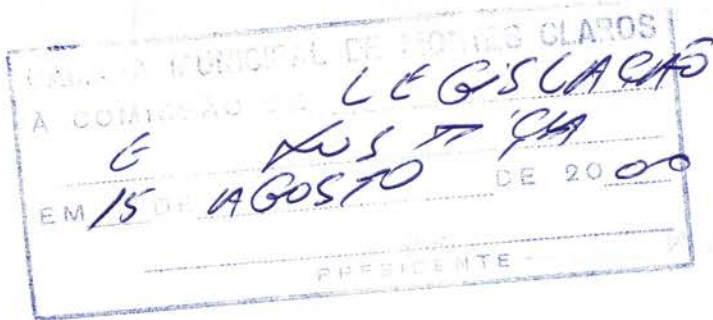 CÂMARA MUNICIPAL DE MONTES CLAROS
A COMISSÃO DE LEGISLAÇÃO
E JUSTIÇA
EM 15 DE AGOSTO DE 2000
PRESIDENTE